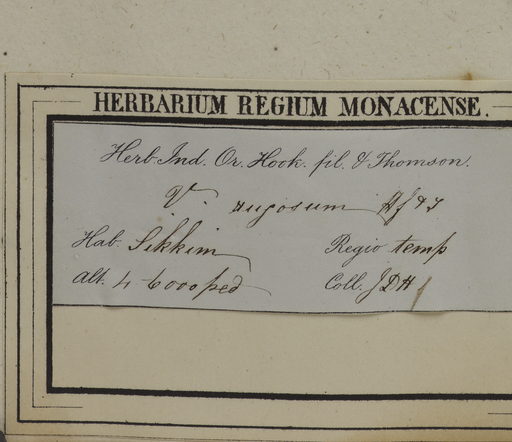 HERBARIUM REGIUM MONACENSE.
Herb. Ind. Or. Hook. fil. & Thomson.
V. rugosum Hf & T
Hab. Sikkim Regio temp
Alt. 4-6000 ped Coll. J D H